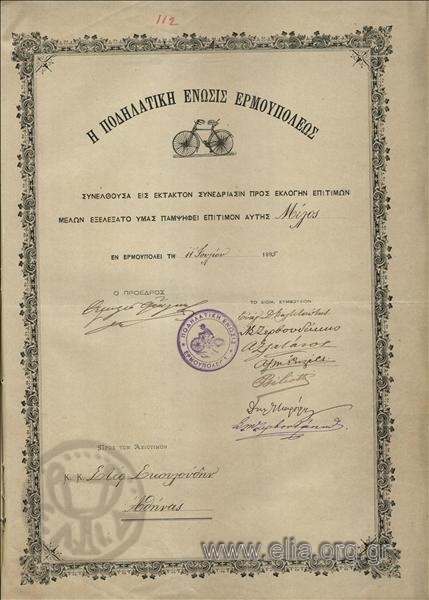 112
Η ΠΟΔΗΛΑΤΙΚΗ ΕΝΩΣΙΣ ΕΡΜΟΥΠΟΛΕΩΣ
ΣΥΝΕΛΘΟΥΣΑ ΕΙΣ ΕΚΤΑΚΤΟΝ ΣΥΝΕΔΡΙΑΣΙΝ ΠΡΟΣ ΕΚΛΟΓΗΝ ΕΠΙΤΙΜΩΝ
ΜΕΛΩΝ ΕΞΕΛΕΞΑΤΟ ΥΜΑΣ ΠΑΜΨΗΦΕΙ ΕΠΙΤΙΜΟΝ ΑΥΤΗΣ Μέλος
ΕΝ ΕΡΜΟΥΠΟΛΕΙ ΤΗ 11 Ἰουλίου 1895
Ο ΠΡΟΕΔΡΟΣ
ΤΟ ΔΙΟΙΚ. ΣΥΜΒΟΥΛΙΟΝ
ΠΟΔΗΛΑΤΙΚΗ ΕΝΩΣΙΣ
ΕΡΜΟΥΠΟΛΕΩΣ
ΠΡΟΣ ΤΟΝ ΑΞΙΟΤΙΜΟΝ
Κ. Κ. Στεφ Σκουλούδην
Ἀθήνας
www.elia.org.gr